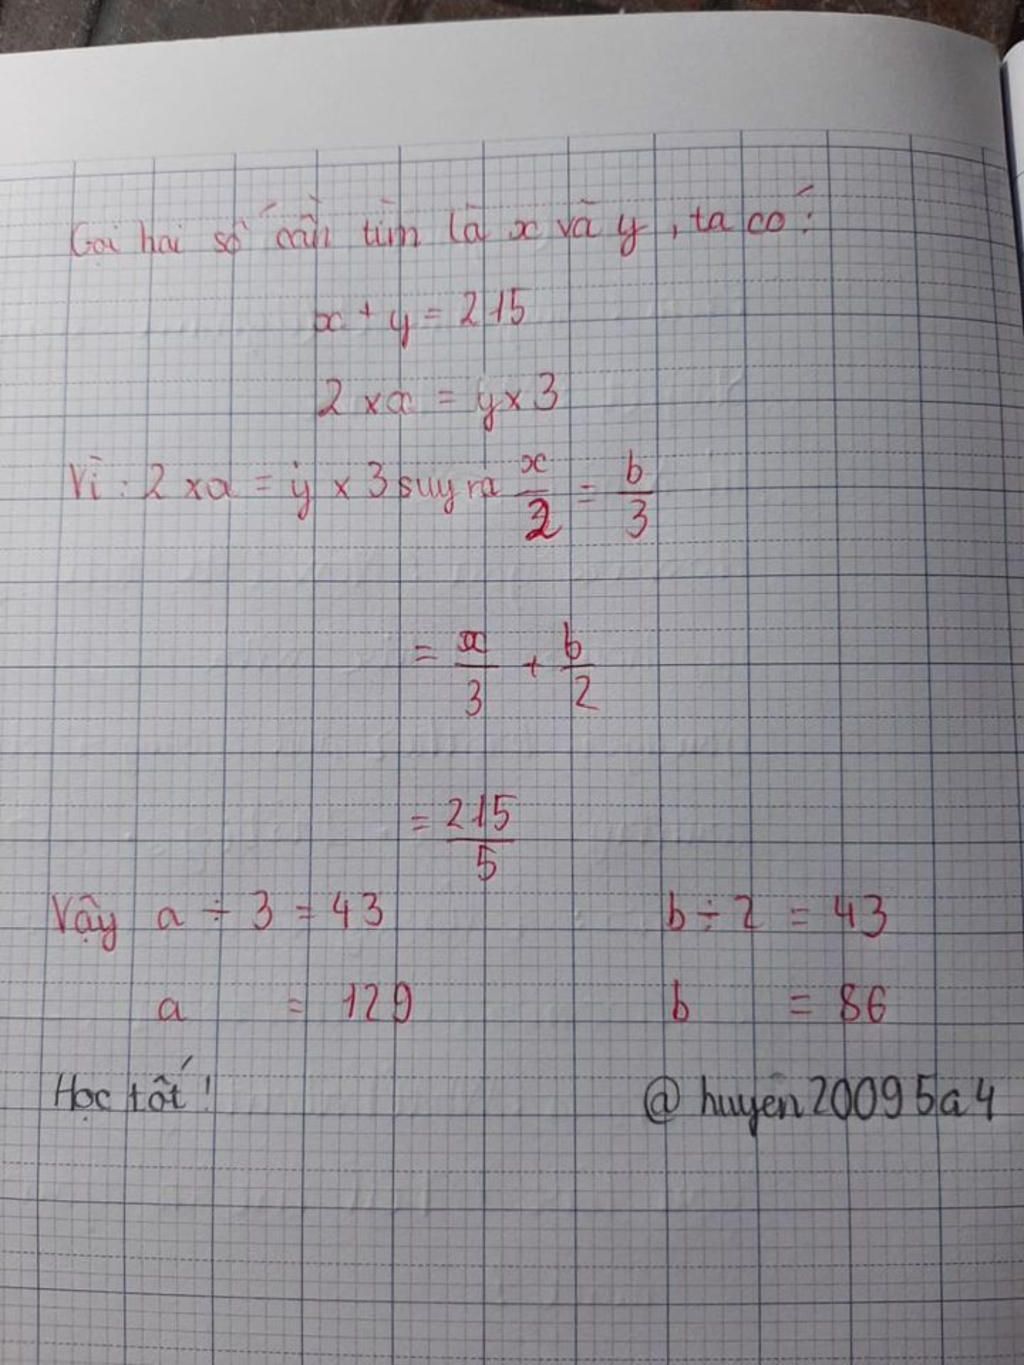 Gọi hai số cần tìm là x và y, ta có:
x + y = 215
2 x x = y x 3
Vì : 2 x x = y x 3 suy ra x/2 = b/3
= x/3 + b/2
= 215/5
Vậy a ÷ 3 = 43 b ÷ 2 = 43
a = 129 b = 86
Học tốt ! @huyen20095a4